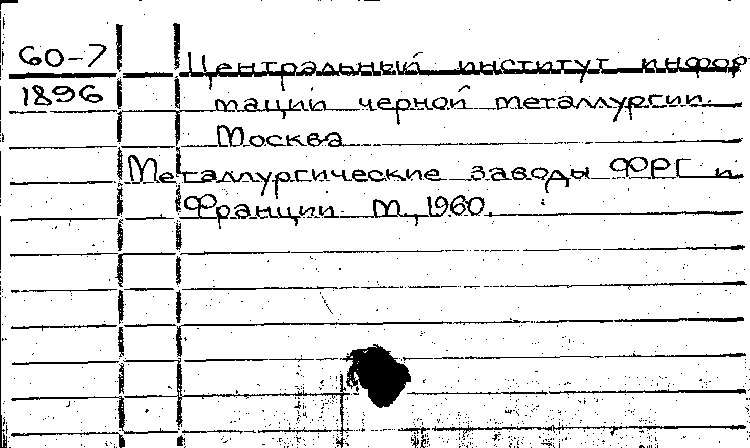 60-7 Центральный институт инфор
1896 мации черной металлургии.
Москва
Металлургические заводы ФРГ и
Франции. М., 1960.